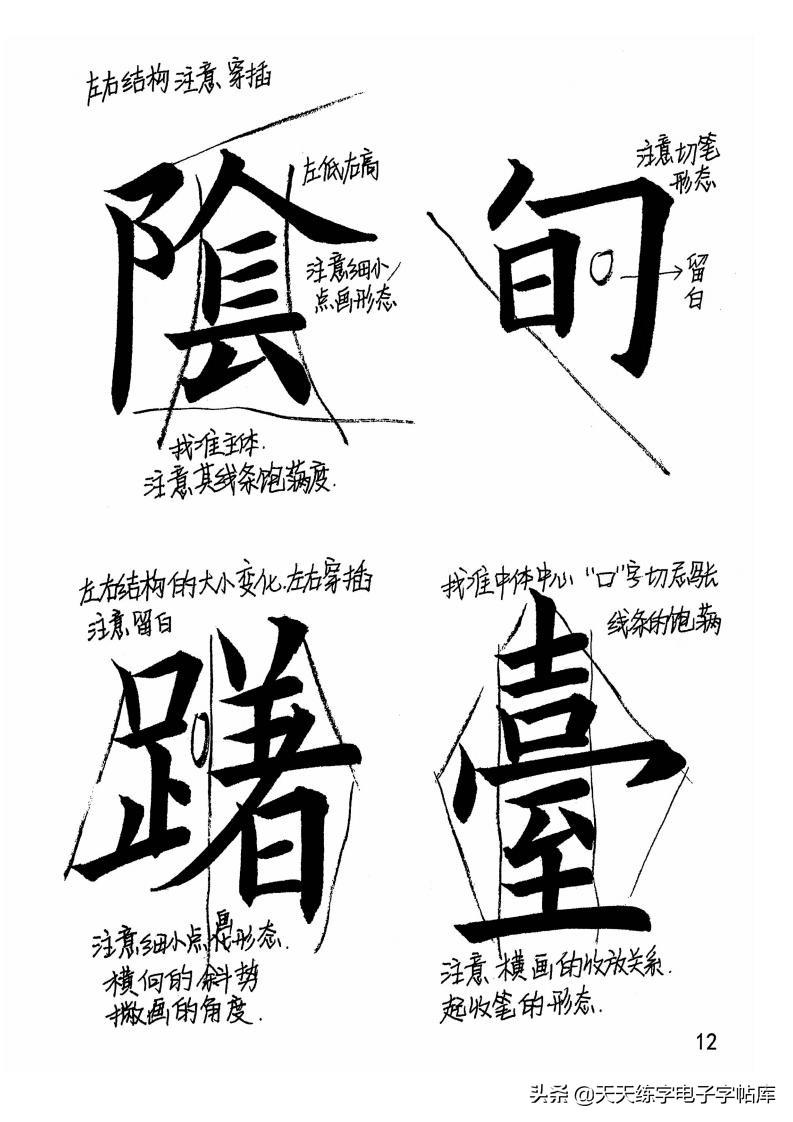 左右结构 注意 穿插
陰
左低右高
注意细小
点画形态
找准主体.
注意其线条饱满度.
旬
注意切笔
形态
留
白
左右结构的大小变化.左右穿插
注意留白
躇
注意细小点画形态.
横向的斜势
撇画的角度.
找准中体中心 "口"字切忌
线条的饱满
臺
注意 横画的收放关系.
起收笔的形态.
12
头条 @天天练字电子字帖库